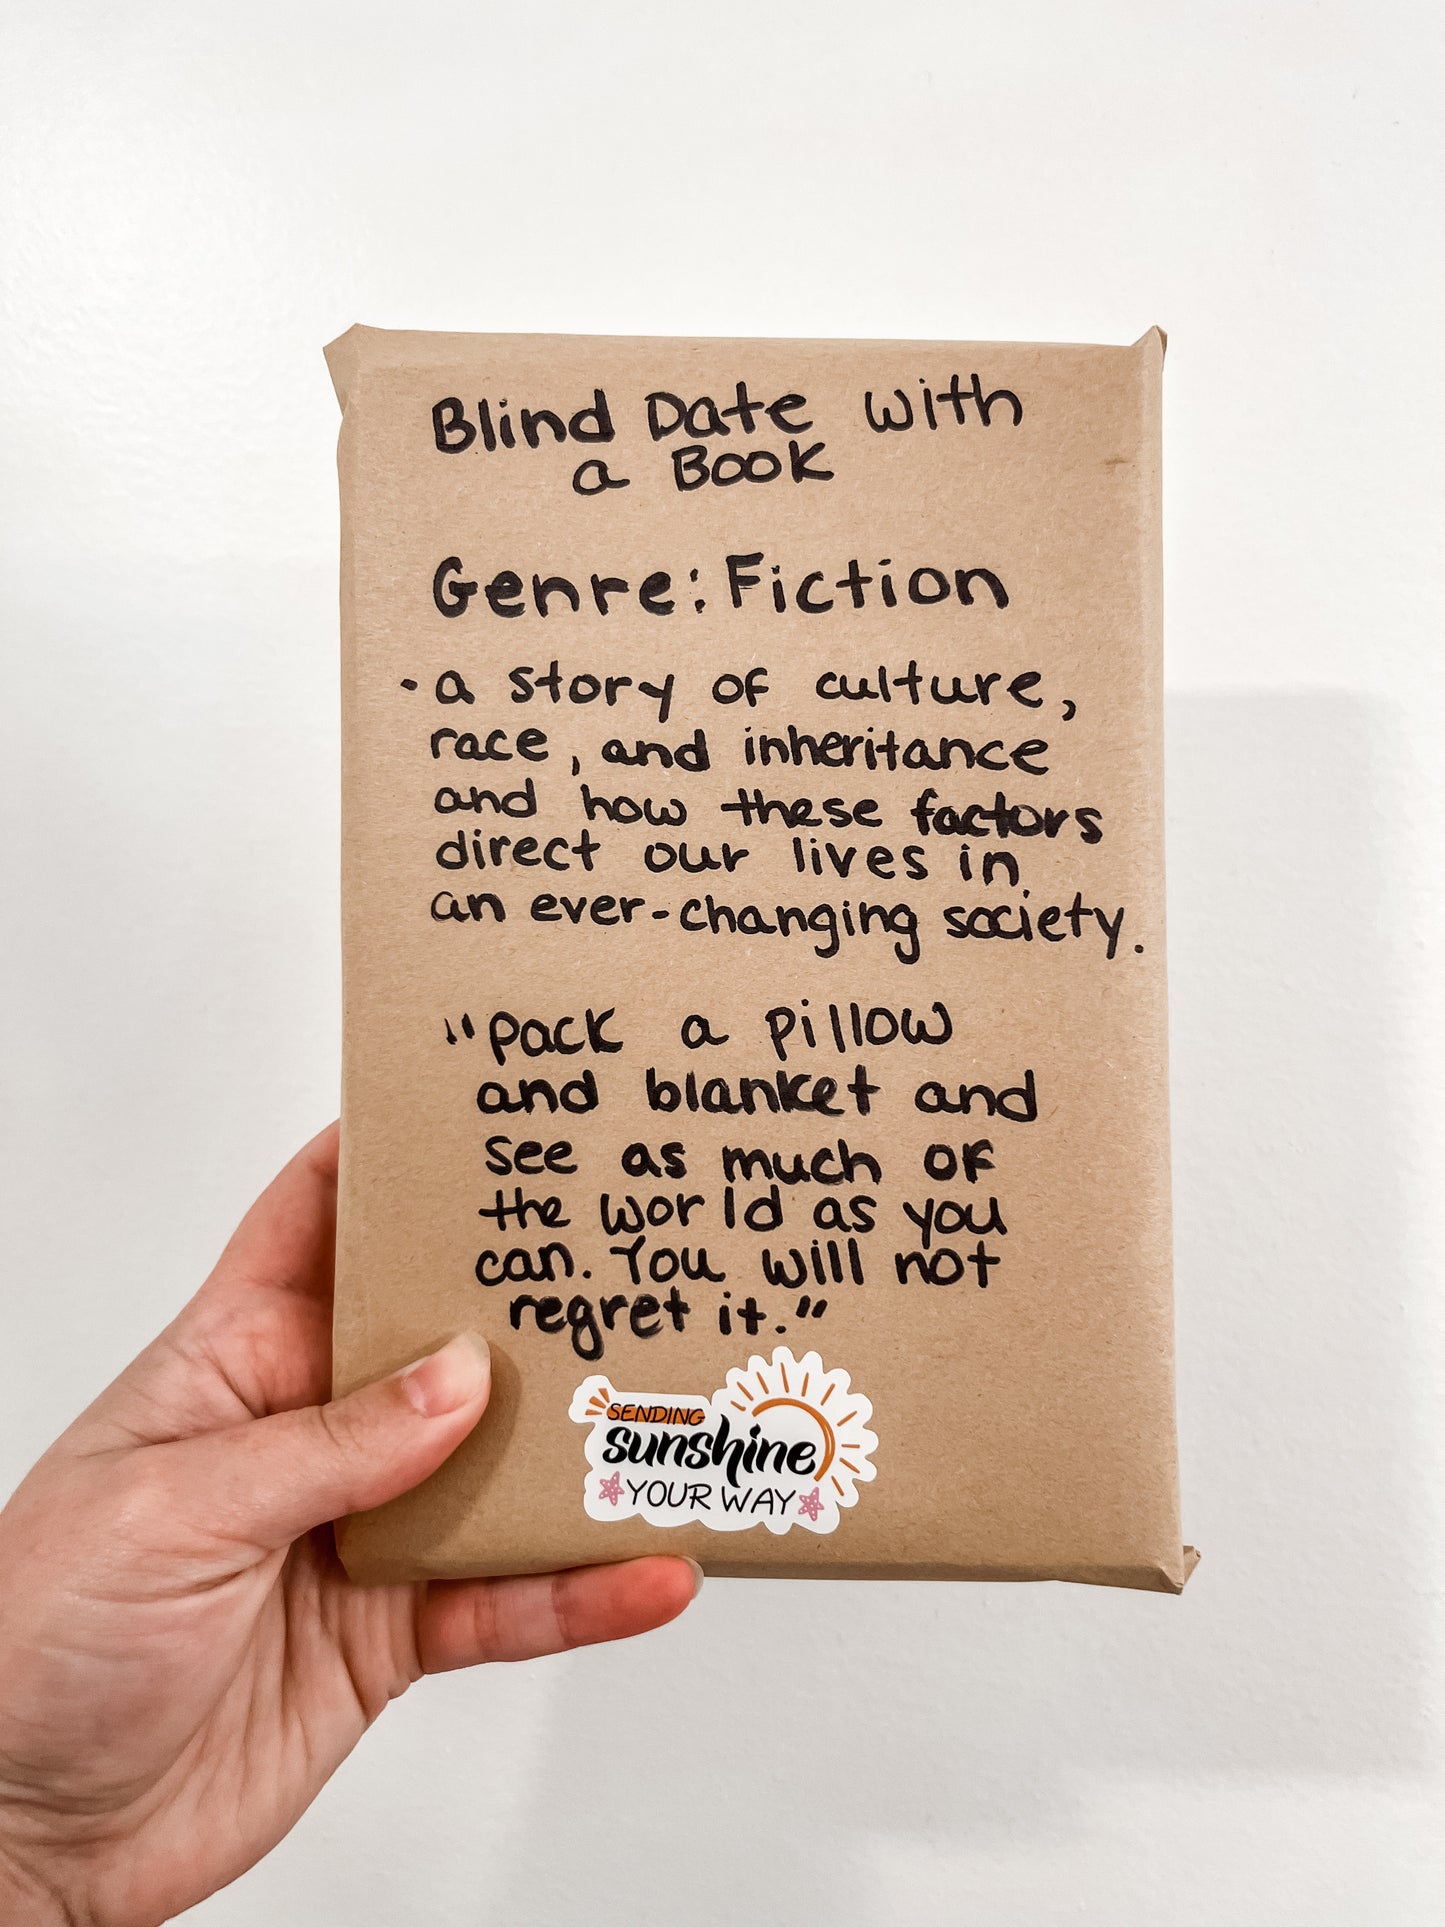 Blind Date with
a Book
Genre: Fiction
• a story of culture,
race, and inheritance
and how these factors
direct our lives in
an ever-changing society.
"Pack a pillow
and blanket and
see as much of
the world as you
can. You will not
regret it."
SENDING
sunshine
YOUR WAY